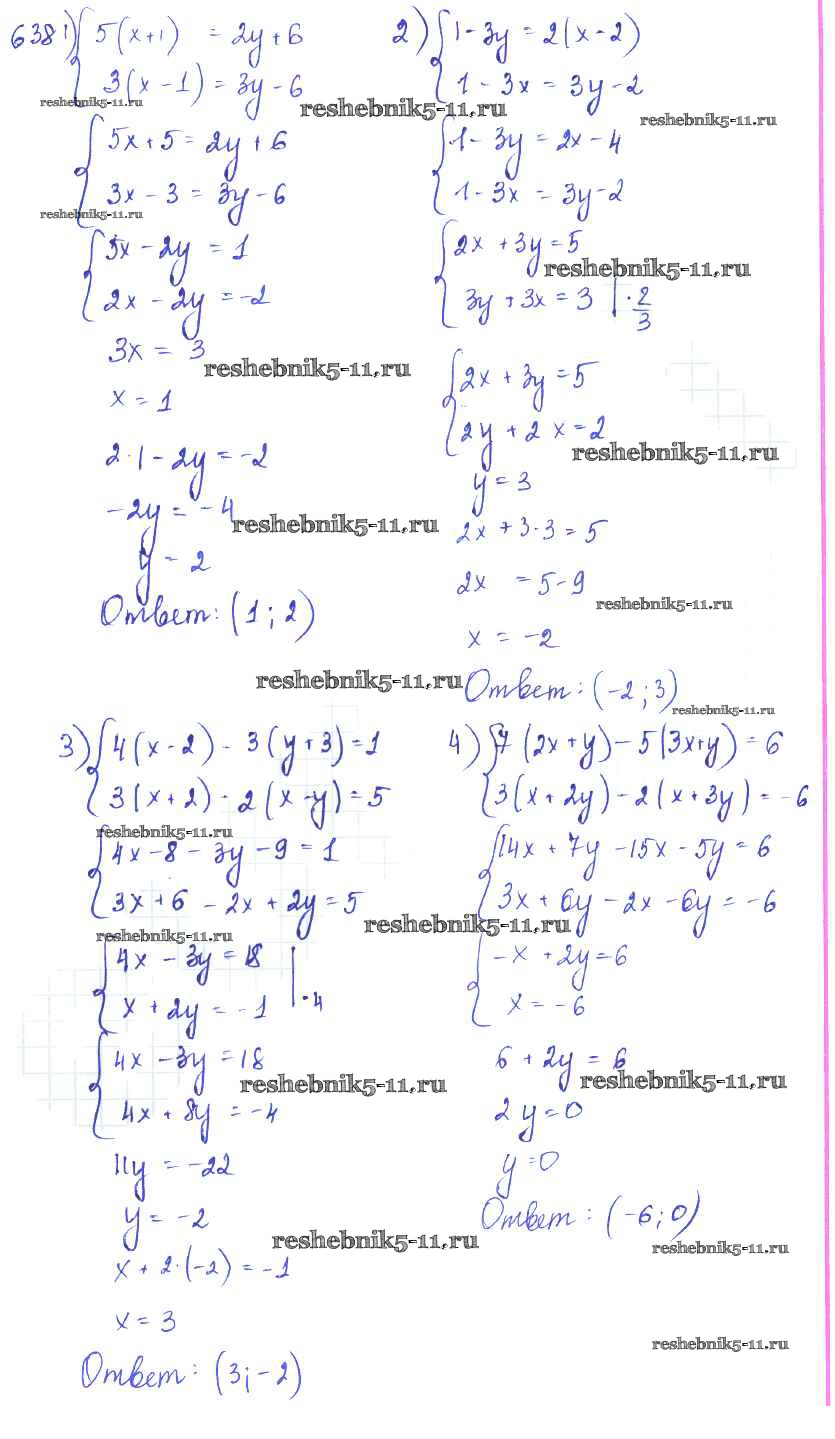 638 1) { 5(x+1) = 2y+6
3(x-1) = 3y-6
reshebnik5-11.ru
reshebnik5-11.ru
{ 5x+5 = 2y+6
3x-3 = 3y-6
reshebnik5-11.ru
{ 5x-2y = 1
2x-2y = -2
3x = 3
reshebnik5-11.ru
x = 1
2·1-2y = -2
-2y = -4
reshebnik5-11.ru
y = 2
Ответ: (1; 2)
2) { 1-3y = 2(x-2)
1-3x = 3y-2
reshebnik5-11.ru
{ 1-3y = 2x-4
1-3x = 3y-2
{ 2x+3y=5
reshebnik5-11.ru
3y+3x=3 |·2/3
{ 2x+3y=5
2y+2x=2
reshebnik5-11.ru
y=3
2x+3·3=5
2x =5-9
reshebnik5-11.ru
x = -2
Ответ: (-2; 3)
reshebnik5-11.ru
reshebnik5-11.ru
3) { 4(x-2) - 3(y+3) = 1
3(x+2) - 2(x-y) = 5
reshebnik5-11.ru
{ 4x-8-3y-9=1
3x+6-2x+2y=5
reshebnik5-11.ru
reshebnik5-11.ru
{ 4x-3y=18
x+2y=-1 |·4
{ 4x-3y=18
reshebnik5-11.ru
4x+8y=-4
11y = -22
y = -2
reshebnik5-11.ru
x+2·(-2) = -1
x = 3
Ответ: (3; -2)
4) { 7(2x+y)-5(3x+y) = 6
3(x+2y)-2(x+3y) = -6
{ 14x+7y-15x-5y=6
3x+6y-2x-6y=-6
{ -x+2y=6
x=-6
6+2y=6
reshebnik5-11.ru
2y=0
y=0
Ответ: (-6; 0)
reshebnik5-11.ru
reshebnik5-11.ru